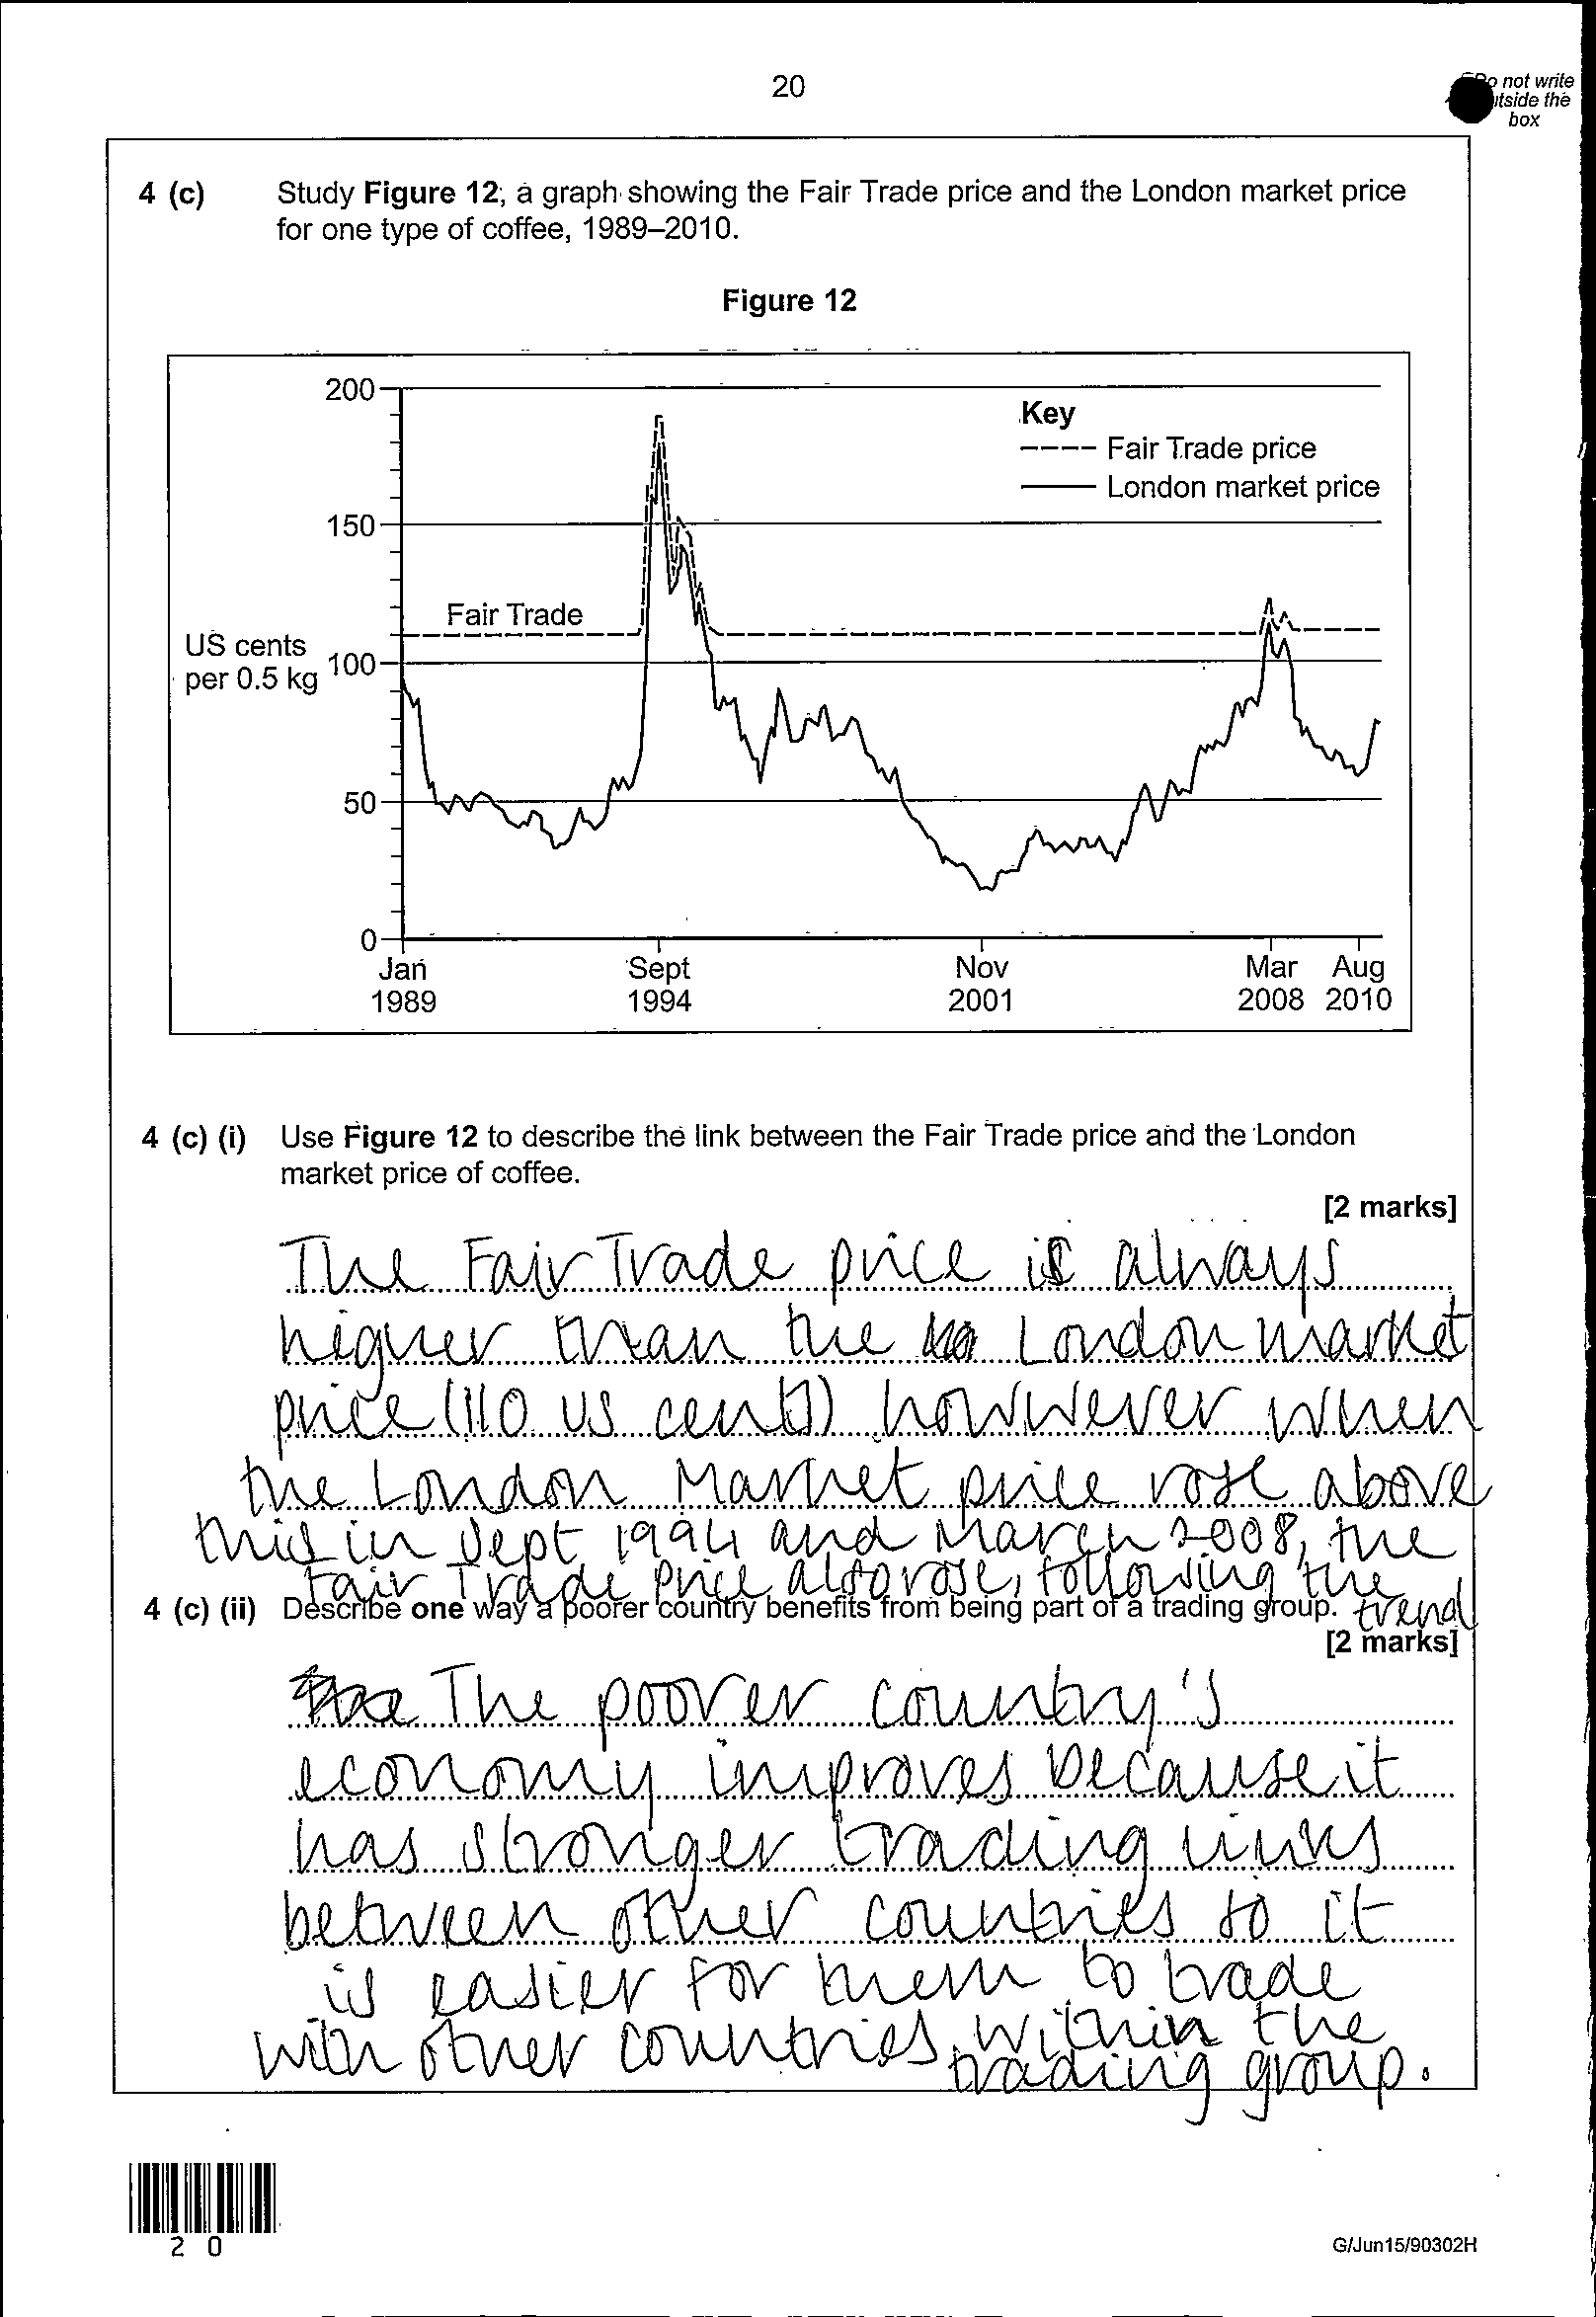 20
Do not write
outside the
box
4 (c) Study Figure 12, a graph showing the Fair Trade price and the London market price
for one type of coffee, 1989–2010.
Figure 12
200
150
100
50
0
US cents
per 0.5 kg
Fair Trade
Key
Fair Trade price
London market price
Jan Sept Nov Mar Aug
1989 1994 2001 2008 2010
4 (c) (i) Use Figure 12 to describe the link between the Fair Trade price and the London
market price of coffee.
[2 marks]
The Fair Trade price is always
higher than the London market
price (110 US cents) howwever when
the London Market price rose above
this in Sept 1994 and March 2008, the
Fair Trade price also rose, following the
trend
4 (c) (ii) Describe one way a poorer country benefits from being part of a trading group.
[2 marks]
The poorer country's
economy improves because it
has stronger trading links
between other countries so it
is easier for them to trade
with other countries within the
trading group.
2 0
G/Jun15/90302H